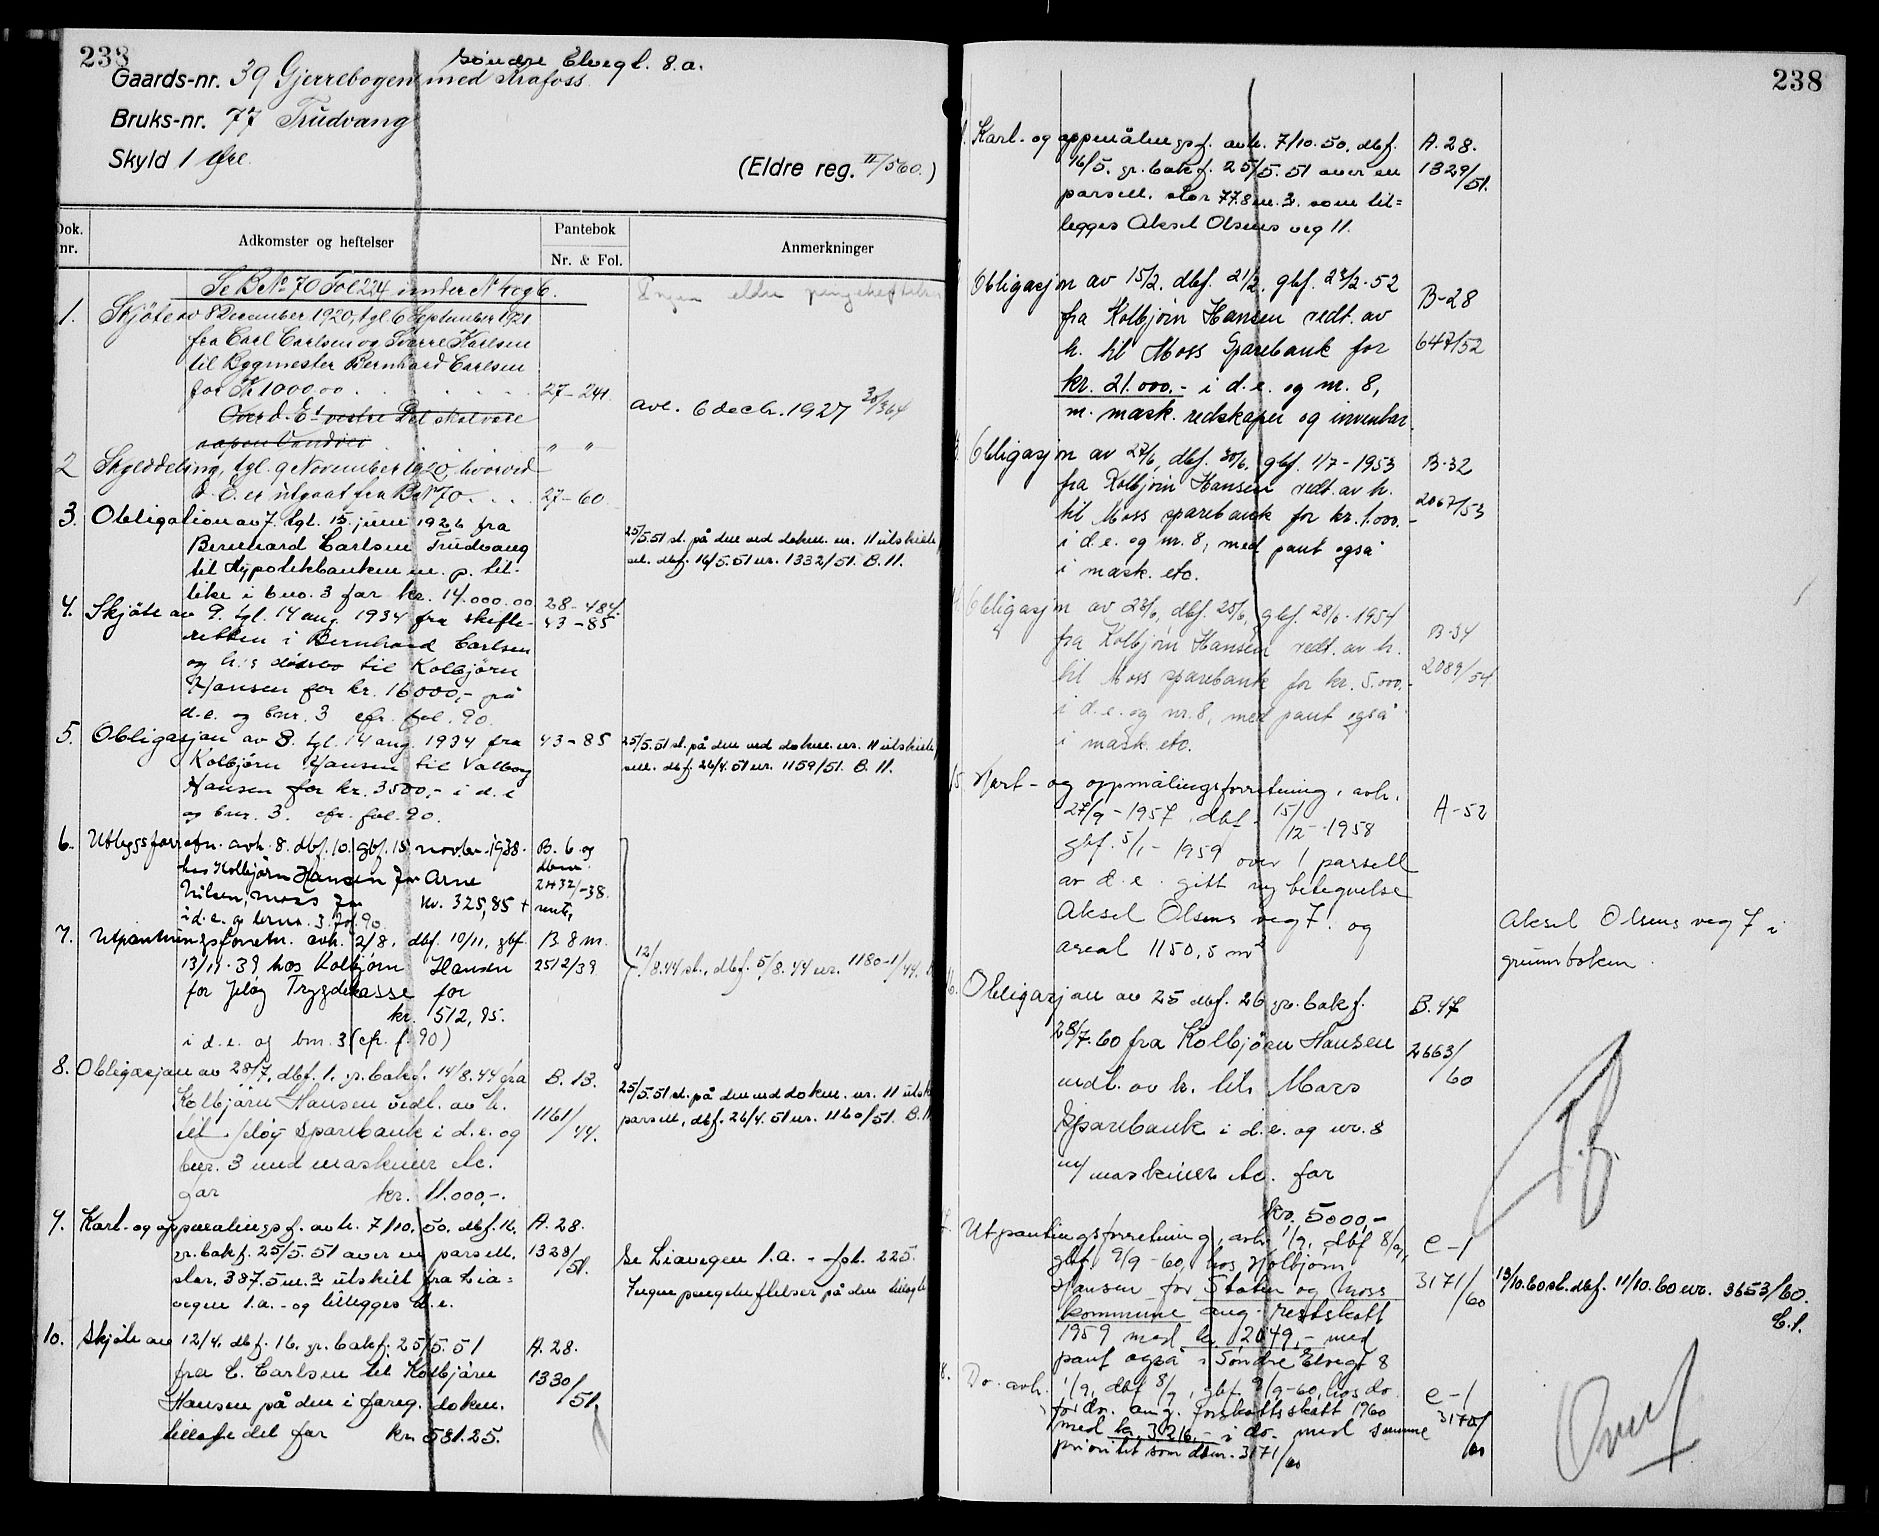 238
Søndre Elvegt. 8.a.
Gaards-nr. 39 Gjerrebogen med Krafoss
Bruks-nr. 77 Trudvang
Skyld 1 Øre
(Eldre reg. II/560.)
Dok. nr.
Adkomster og heftelser
Pantebok
Nr. & Fol.
Anmerkninger
Se BNo 70 Fol 224 under N 4 og 6.
Ingen eldre pengeheftelser
1. Skjøte av December 1920, tgl. 6 September 1921
fra Carl Carlsen og Sverre Karlsen
til Bygmester Bernhard Carlsen
for Kr 1000.00 . . . . . 27-241.
avl. 6 decbr. 1927 30/364
Over d. E's vestre Del skal være
" "
2 Skylddeling, tgl. 9 November 1920 hvorved
d. E. er utgaat fra BNr 70 . . . 27-60
3. Obligation av 7. tgl. 15 juni 1926 fra
Bernhard Carlsen Trudvang
til Hypotekbanken m. p. til-
like i bno. 3 for kr. 14.000.00 28-484.
25/5.51 sl. på den ved dokm. nr. 11 utskilte
sel. dbf. 16/5.51 nr. 1332/51. B. 11.
4. Skjøte av 9. tgl. 14 aug. 1934 fra skifte- 43-85
retten i Bernhard Carlsen
og h.s dødsbo til Kolbjørn
Hansen for kr. 16000,- på
d.e. og bnr. 3 cfr. fol. 90.
5. Obligasjon av 8. tgl. 14 aug. 1934 fra 43-85
Kolbjørn Hansen til Valborg
Hansen for kr. 3500,- i d.e
og bnr. 3. cfr. fol. 90.
25/5.51 sl. på den ved dokm. nr. 11 utskilte
sell. dbf. 26/4.51 nr. 1159/51. B. 11.
6. Utleggsforretn. avh. 8. dbf. 10. gbf. 15 novbr. 1938. B. 6 og
hos Kolbjørn Hansen for Arne dbnr.
Nilsen, Moss for kr. 325,85 + 2432/-38.
i d.e. og brnr. 3. fol 90 rente,
7. Utpantningsforretn. avh. 2/8, dbf. 10/11, gbf. B 8 m.
13/11-39 hos Kolbjørn Hansen 2512/39
for Jeløy Trygdekasse for
kr. 512,95.
i d.e. og bnr. 3 (cfr. f. 90)
12/8.44 sl., dbf. 5/8.44 nr. 1180-1/44.
8. Obligasjon av 28/7, dbf. 1. gr.bokf. 14/8.44 fra B. 13.
Kolbjørn Hansen vedt. av h. 1161/44.
til Jeløy Sparebank i d.e. og
bnr. 3 med maskiner etc.
for kr. 11.000,-.
25/5.51 sl. på den ved dokm. nr. 11 utsk
parsell, dbf. 26/4.51 nr. 1160/51. B. 11
9. Kart- og oppmålingsf. avh. 7/10.50. dbf. 16. A. 28.
gr.bokf. 25/5.51 over en parsell. 1328/51.
stor. 387.5 m.2 utskilt fra Lia=
vegen 1.a. - og tillegges d.e.
Se Liavegen 1.a. - fol. 225.
Ingen pengeheftelser på den tillagte
10. Skjøte av 12/4. dbf. 16. gr.bokf. 25/5.51 A. 28.
fra C. Carlsen til Kolbjørn 1330/51
Hansen på den i foreg. dokm.
tillagte del for kr. 581.25.
238
Kart- og oppmålingsf. avh. 7/10.50. dbf. A. 28.
16/5. gr.bokf. 25/5.51 over en 1329/51.
parsell. stor 77.8 m.2. som til=
legges Aksel Olsens veg 11.
Obligasjon av 15/2, dbf. 21/2, gbf. 23/2-52 B-28
fra Kolbjørn Hansen vedt. av
h. til Moss Sparebank for 647/52
kr. 21.000.- i d.e. og nr. 8,
m. mask. redskaper og inventar.
Obligasjon av 27/6, dbf. 30/6, gbf. 1/7-1953 B-32
fra Kolbjørn Hansen vedt. av h.
til Moss sparebank for kr. 1.000.- 2067/53
i d.e. og nr. 8, med pant også
i mask. etc.
Obligasjon av 23/6, dbf. 25/6, gbf. 28/6-1954
fra Kolbjørn Hansen vedt. av h. B-34
til Moss sparebank for kr. 5.000.- 2089/54
i d.e. og nr. 8, med pant også
i mask. etc.
15. Kart- og oppmålingsforretning, avh.
27/9-1957, dbf. 15/12-1958 A-52
gbf. 5/1-1959 over 1 parsell
av d.e. gitt ny betegnelse
Aksel Olsens veg 7. og
areal 1150,5 m2
Aksel Olsens veg 7 i
grunnboken.
16. Obligasjon av 25 dbf. 26 gr.bokf. B. 47
28/7.60 fra Kolbjørn Hansen 2663/60
vedt. av h. til Moss
Sparebank i d.e. og nr. 8
m/maskiner etc. for
kr. 5000,-
Utpantingsforretning, avh. 1/9, dbf 8/9, C-1
gbf. 9/9-60, hos Kolbjørn
Hansen for Staten og Moss 3171/60
kommune ang. restskatt
1959 med kr. 2049,- med
pant også i Søndre Elvegt 8
13/10.60 sl. dbf. 11/10.60 nr. 3653/60.
C. 1.
8. Do. avh. 1/9, dbf 8/9, gbf. 9/9-60, hos do. C-1
for do. ang. forskottsskatt 1960 3170/60
med kr. 3216,- i do. med samme
prioritet som dbnr. 3171/60